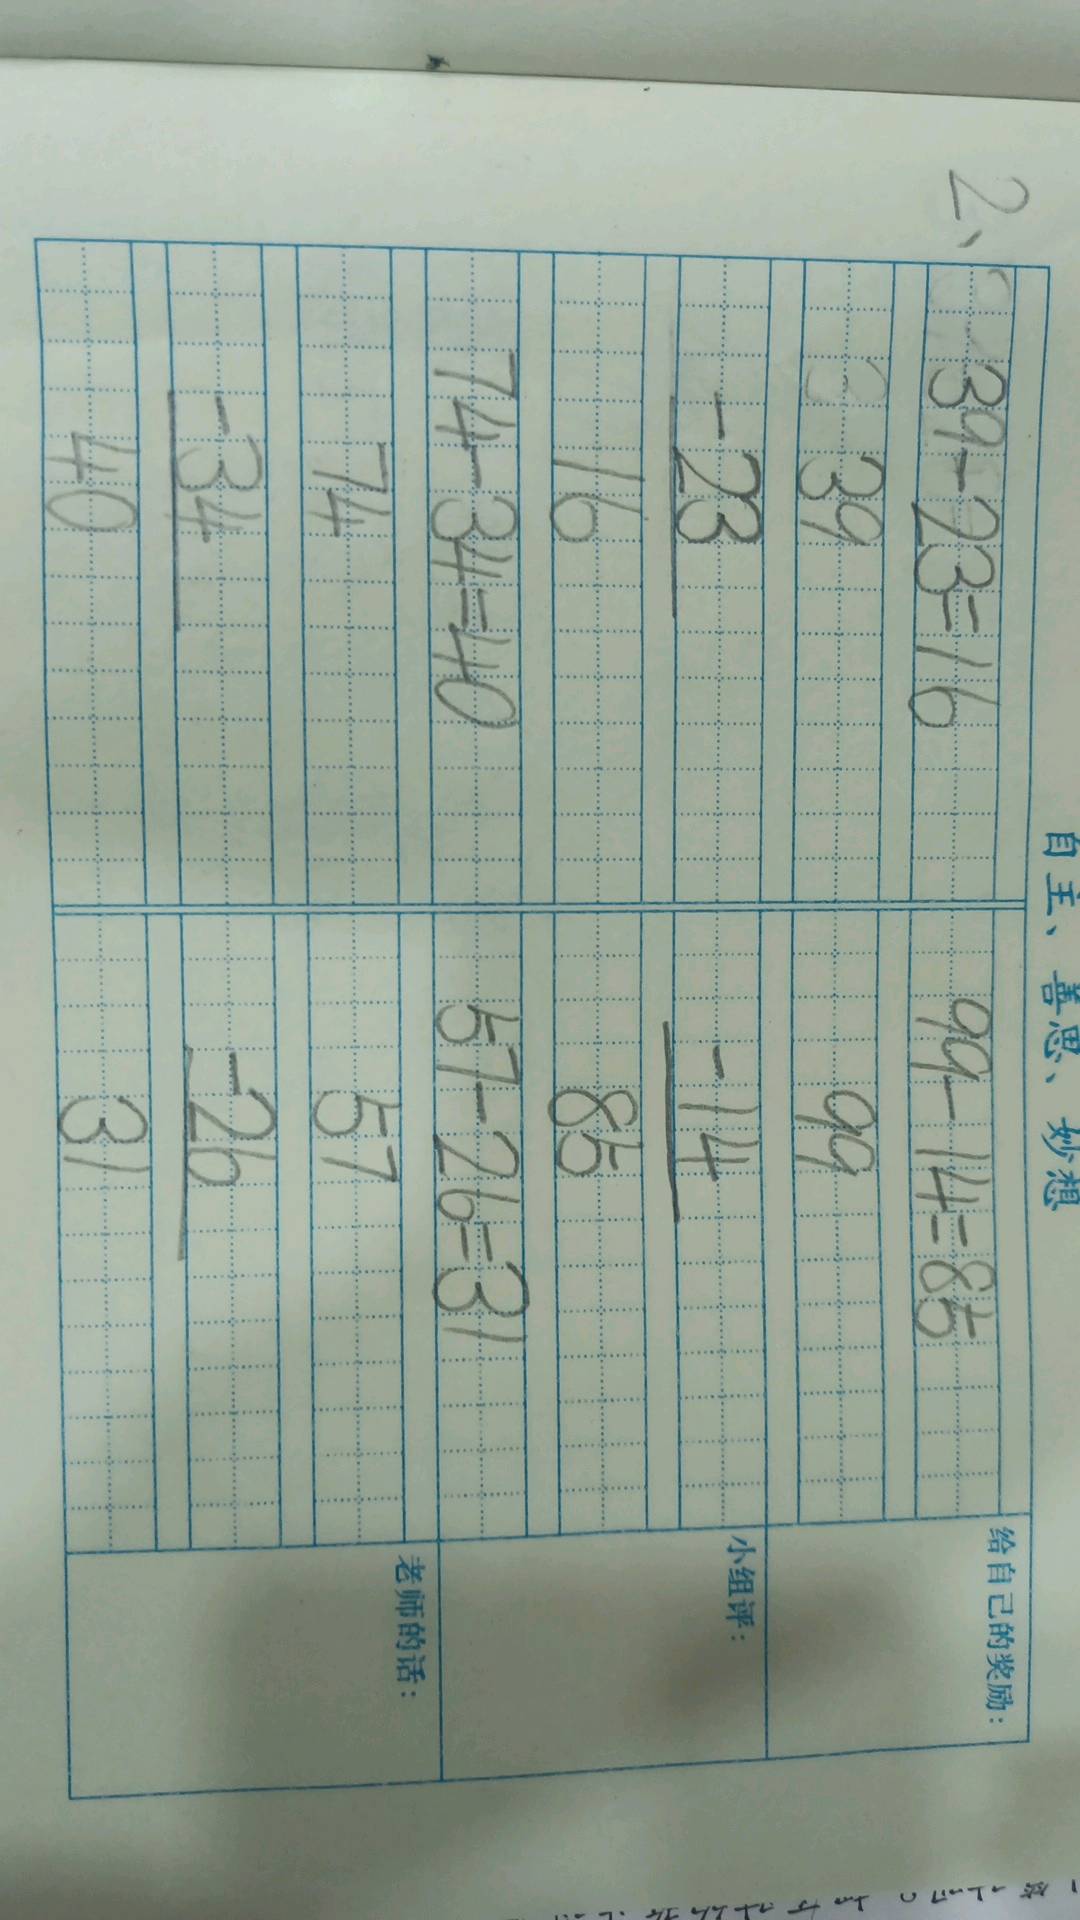 自主、善思、妙想
2、
39-23=16
39
-23
16
74-34=40
74
-34
40
99-14=85
99
-14
85
57-26=31
57
-26
31
给自己的奖励：
小组评：
老师的话：